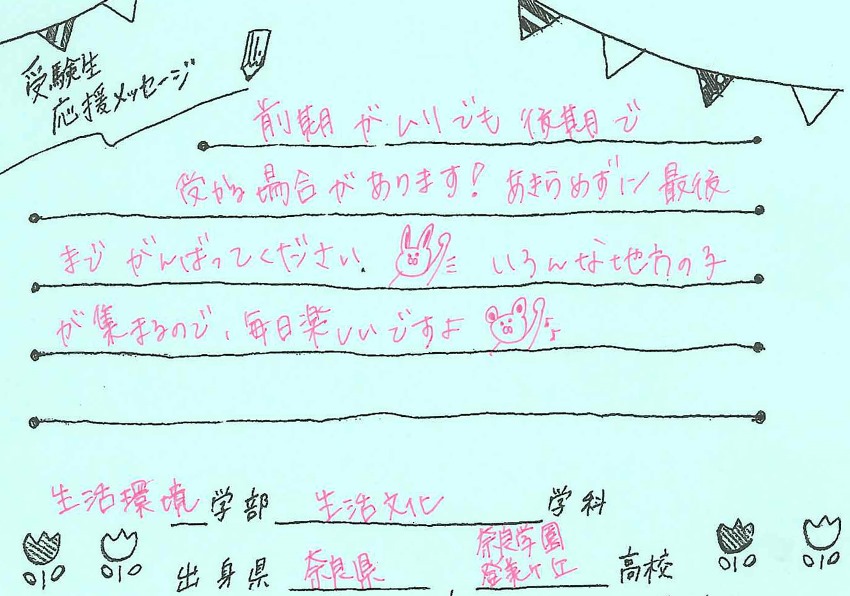 受験生
応援メッセージ
前期がムリでも後期で
受かる場合があります！あきらめずに最後
までがんばってください。いろんな地方の子
が集まるので、毎日楽しいですよ
生活環境学部 生活文化 学科
出身県 奈良県 奈良学園登美ヶ丘 高校